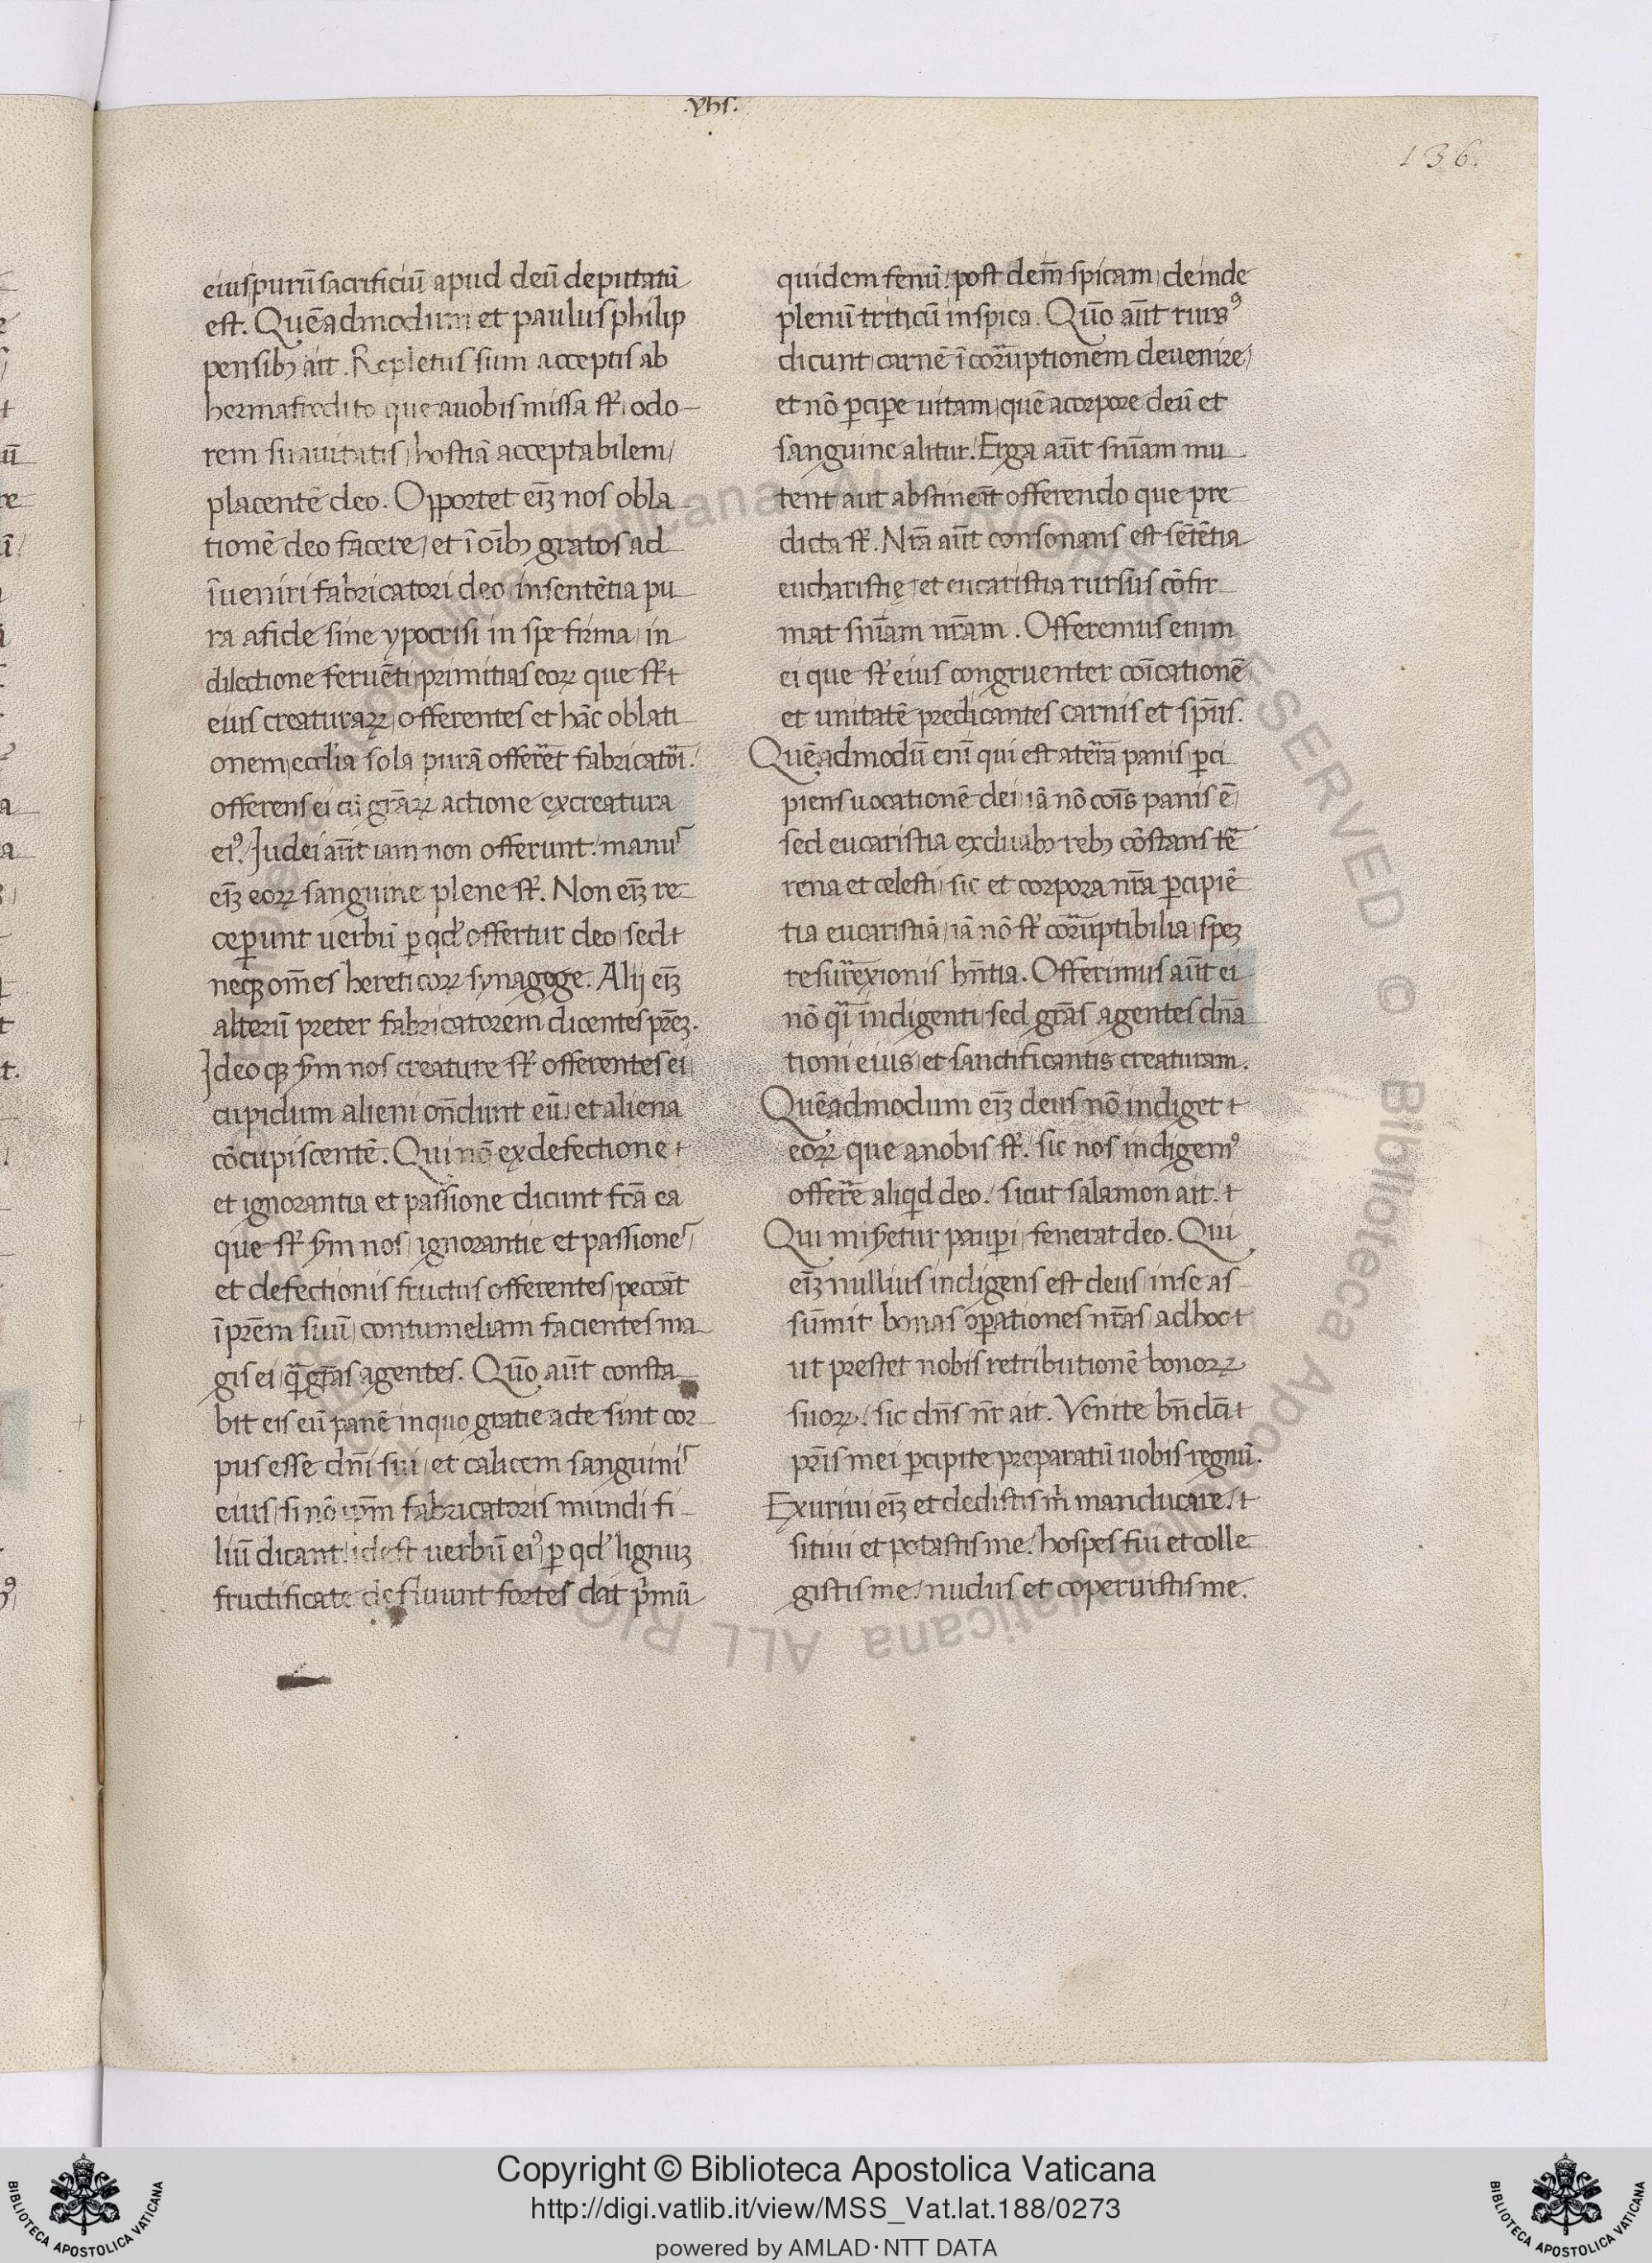 .yhs.
136.
eius purū sacrificiū apud deū deputatū
est. Quēadmodum et paulus philip
pensibꝫ ait. Repletus sum acceptis ab
hermafrodito que auobis missa st̄ odo
rem suauitatis hostiā acceptabilem
placentē deo. Opportet eīꝫ nos obla
tionē deo facere et ī oībꝫ gratos ad
īueniri fabricatori deo in sentētia pu
ra a fide sine ypocrisi in spe firma in
dilectione feruēti primitias eoꝝ que st̄
eius creaturaꝝ offerentes et hāc oblati
onem ecclīa sola purā offert fabricatori.
offerens ei cū grāꝝ actione ex creatura
eiꝰ. Judei aūt iam non offerunt. manus
eīꝫ eoꝝ sanguine plene st̄. Non eīꝫ re
ceperunt uerbū ꝑ qd̓ offertur deo sed
neqꝫ om̄es hereticoꝝ synagoge. Alij eīꝫ
alterū preter fabricatorem dicentes pr̄eꝫ.
Ideoqꝫ ẜm nos creature st̄ offerentes ei
cupidum alieni on̄dunt eū et aliena
cōcupiscentē. Qui nō ex defectione
et ignorantia et passione dicunt fc̄a ea
que st̄ ẜm nos ignorantie et passiones
et defectionis fructus offerentes peccāt
ī pr̄em suū contumeliam facientes ma
gis ei q̄ gr̄as agentes. Quō aūt consta
bit eis eū panē in quo gratie acte sint cor
pus esse dn̄i sui et calicem sanguinis
eius si nō ip̄m fabricatoris mundi fi
liū dicant id est uerbū eiꝰ ꝑ qd̓ lignuꝫ
fructificat defluunt fontes dat pimū
quidem fenū. post dem̄ spicam deinde
plenū triticū in spica. Quō aūt rursꝰ
dicunt carnē ī corruptionem deuenire
et nō ꝑcipe uitam quē a corpore deū et
sanguine alitur. Erga aūt sn̄iam mu
tent aut abstineāt offerendo que pre
dicta st̄. Nr̄a aūt consonans est sētētia
eucharistię et eucaristia rursus cōfir
mat sn̄iam nr̄am. Offeremus enim
ei que st̄ eius congruenter coīcationē
et unitatē predicantes carnis et sp̄us.
Quēadmodū enī qui est a terra panis ꝑci
piens uocationē dei iā nō coīs panis ē
sed eucaristia ex duabꝫ rebꝫ cōstans ter
rena et celesti sic et corpora nr̄a ꝑcipiē
tia eucaristiā iā nō st̄ corruptibilia speꝫ
resurrexionis hn̄tia. Offerimus aūt ei
nō q̄i indigenti sed gr̄as agentes dn̄a
tioni eius et sanctificantis creaturam.
Quēadmodum eīꝫ deus nō indiget
eoꝝ que a nobis st̄. sic nos indigemꝰ
offerre aliqd deo. sicut salamon ait.
Qui miẜetur pauꝑi fenerat deo. Qui
eīꝫ nullius indigens est deus in se as
sūmit bonas oꝑationes nr̄as ad hoc
ut prestet nobis retributionē bonoꝝ
suoꝝ. sic dn̄s nr̄ ait. Venite bn̄dc̄i
pr̄is mei ꝑcipite preparatū uobis regnū.
Exuriui eīꝫ et dedistis m̄ manducare.
sitiui et potastis me. hospes fui et colle
gistis me. nudus et coperuistis me.
Copyright © Biblioteca Apostolica Vaticana
http://digi.vatlib.it/view/MSS_Vat.lat.188/0273
powered by AMLAD·NTT DATA
BIBLIOTECA APOSTOLICA VATICANA
BIBLIOTECA APOSTOLICA VATICANA